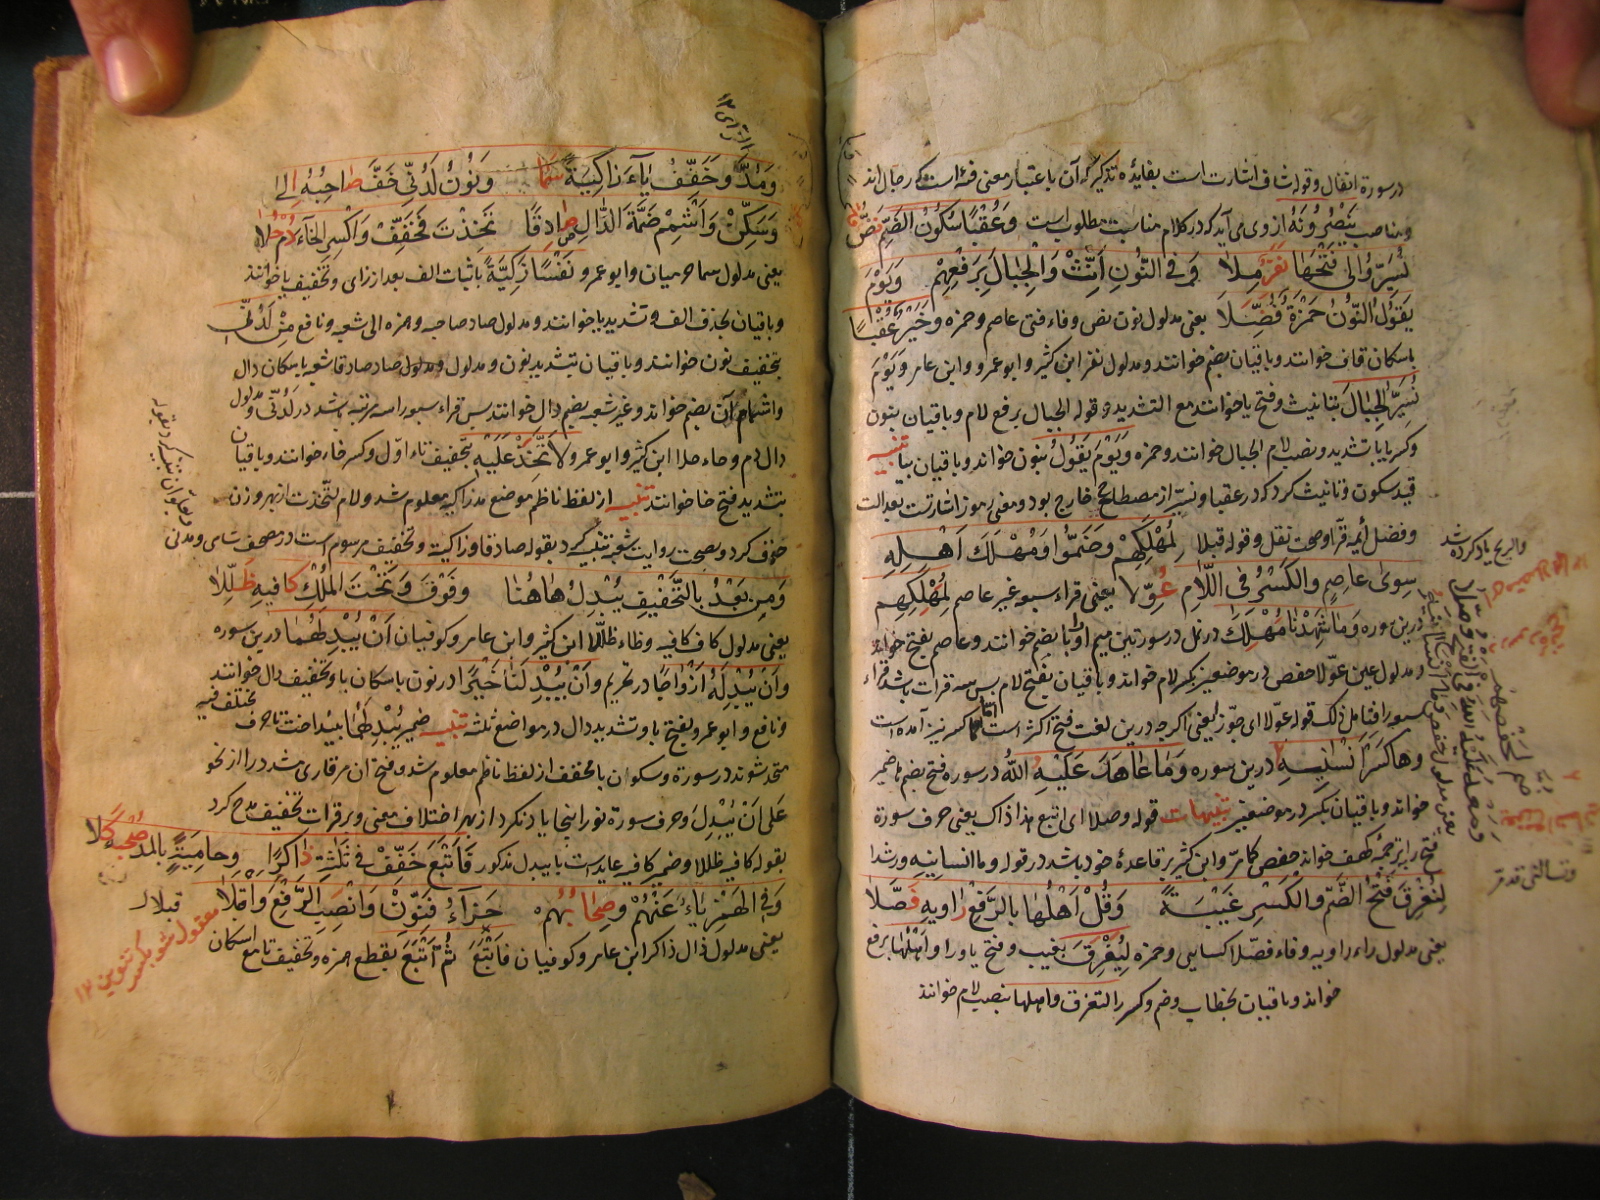 در سورۀ انفال وقوله ث اشارت است بفایدۀ تذکیر که آن باعتبار معنی فئه است که رجال اند
ومناصب ینصرونه ازوی می آید که در کلام مناسبت مطلوب است وَعُقْبًا سُكُونُ الضَّمِّ نَصُّ فَتًى
نُسَيِّرُ وَالَى فَتْحَهَا نَفَرٌ مِلَا وَفِي النُّونِ أَنِّثْ وَالْجِبَالَ بِرَفْعِهِمْ وَيَوْمَ
يَقُولُ النُّونُ حَمْزَةُ فَضَّلَا یعنی مدلول نون نص وفاء فتی عاصم وحمزه وَخَيْرٌ عُقْبًا
باسکان قاف خوانند وباقیان بضم خوانند ومدلول نفر ابن کثیر وابو عمرو وابن عامر وَيَوْمَ
تُسَيَّرُ الْجِبَالُ بتانیث وفتح یا خوانند مع التشدید وقوله الجبال برفع لام وباقیان بنون
وکسر یا با تشدید ونصب لام الجبال خوانند وحمزه وَيَوْمَ نَقُولُ بنون خواند وباقیان بیا تنبیه
قید سکون وتانیث کرد که در عقبا ونسیر از مصطلح خارج بود ومعنی رموز اشارتست بعدالت
وفضل أیمه قرآ وصحت نقل وقوله قبلا لِمَهْلِكِهِمْ ضَمُّوا وَمَهْلِكَ أَهْلِهِ
سِوَى عَاصِمٍ وَالْكَسْرُ فِي اللَّامِ عُوِّلَا یعنی قراء سبعه غیر عاصم لِمُهْلَكِهِم
درین سوره وَمَا شَهِدْنَا مُهْلَكَ در نمل در سورتین میم اول را بضم خوانند وعاصم بفتح خواند
ومدلول عین عوّلا حفص در موضعین بکسر لام خواند وباقیان بفتح لام پس سه قرات باشد قراء
سبعه را فتامل ذلک قوله عوّلا ای جوّز یعنی اگرچه درین لغت فتح اکثر است اما کسر نیز آمده است
وَهَا كَسْرِ أَنْسَانِيهِ درین سوره وَمَا عَاهَدَ عَلَيْهُ اللهَ در سوره فتح بضم ها ضمیر
خواند وباقیان بکسر در موضعین تنبیهات قوله وصلا ای اتبع هذا ذاک یعنی حرف سورة
فتح را بترجمۀ کهف خواند حفص کما مرّ وابن کثیر بر قاعدۀ خود باشد در قوله وما انسانیه ورشدا
لِتُغْرِقَ فَتْحُ الضَّمِّ وَالْكَسْرِ غَيْبَةً وَقُلْ أَهْلُهَا بِالرَّفْعِ رَاوِيهِ فَصَّلَا
یعنی مدلول راء راویه وفاء فصّلا کسایی وحمزه لِيَغْرَقَ بغیب وفتح یا ورا واهلها برفع
خوانند وباقیان بخطاب وضم وکسر را لتغرق واهلها بنصب لام خوانند
وَمُدَّ وَخَفِّفْ يَاءَ زَاكِيَةً سَمَا وَنُونُ لَدُنِّي خَفَّ صَاحِبُهُ إِلَى
وَسَكِّنْ وَأَشْمِمْ ضَمَّةَ الدَّالِ صَادِقًا تَخِذْتَ فَخَفِّفْ وَاكْسِرِ الْخَاءَ دُمْ حُلَا
یعنی مدلول سما حرمیان وابو عمرو نَفْسًا زَكِيَّةً باثبات الف بعد از زای وتخفیف یا خوانند
وباقیان بحذف الف وتشدید یا خوانند ومدلول صاد صاحبه وهمزه الی شعبه ونافع مِنْ لَدُنِي
بتخفیف نون خوانند وباقیان بتشدید نون ومدلول صاد صادقا شعبه باسکان دال
واشمام آن بضم خواند وغیر شعبه بضم دال خوانند پس قراء سبعه را سه مرتبه باشد در لدنی ومدلول
دال دم وحاء حلا ابن کثیر وابو عمرو لَاتَّخَذْتَ عَلَيْهِ بتخفیف تاء اوّل وکسر خاء خوانند وباقیان
بتشدید فتح خا خوانند تنبیه از لفظ ناظم موضع مد زاکیه معلوم شد ولام لتخذت از بهر وزن
حذف کرد وبصحت روایت شعبه تنبیه کرد بقوله صادقا وزاکیة وتخفیف مرسوم است در مصحف شامی ومدنی
وَمِنْ بَعْدُ بِالتَّخْفِيفِ يُبْدِلَ هَاهُنَا وَفَوْقَ وَتَحْتَ الْمُلْكِ كَافِيهِ ظَلَّلَا
یعنی مدلول کاف کافیه وظاء ظلّلا ابن کثیر وابن عامر وکوفیان أَنْ يُبْدِلَهُمَا درین سوره
وَأَنْ يُبْدِلَهُ أَزْوَاجًا در تحریم وَأَنْ يُبْدِلَنَا خَيْرًا در نون باسکان با وتخفیف دال خوانند
ونافع وابو عمرو بفتح با وتشدید دال در مواضع ثلثه تنبیه ضمیر يُبْدِلَهُمَا بینداخت تا حرف مختلف فیه
متحد شوند در سورة وسکون با مخفف از لفظ ناظم معلوم شد وفتح آن مر قاری مشدد را از نحو
عَلَى أَنْ يُبْدِلَ وحرف سورة نور اینجا یاد نکرد از بهر اختلاف معنی وبر قرات تخفیف مدح کرد
بقوله کافیه ظللا وضمیر کافیه عاید است بایبدل مذکور فَأَتْبَعَ خَفِّفْ فِي الثَّلَاثَةِ ذَاكِرًا وَحَامِيَةً بِالْمَدِّ صُحْبَتُهُ كَلَا
وَفِي الْهَمْزِ يَاءٌ عَنْهُمُ وَصِحَابُهُمْ جَزَاءُ فَنَوِّنْ وَانْصِبِ الرَّفْعَ وَاقْبَلَا
یعنی مدلول ذال ذاکرا ابن عامر وکوفیان فَأَتْبَعَ ثُمَّ أَتْبَعَ بقطع همزه وتخفیف تا مع اسکان